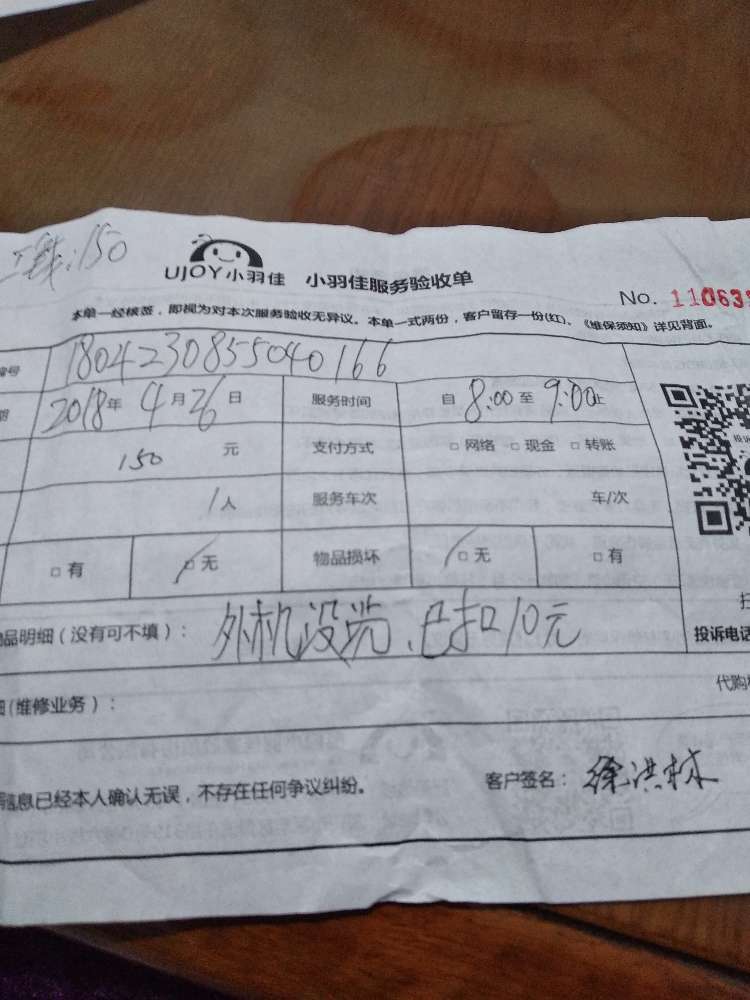 150
UJOY小羽佳 小羽佳服务验收单
No. 110639
本单一经核签，即视为对本次服务验收无异议。本单一式两份，客户留存一份(红)、《维保须知》详见背面。
编号 1804230855040166
期 2018年4月26日 服务时间 自8:00至9:00止
150 元 支付方式 □网络 □现金 □转账
1人 服务车次 车/次
□有 □无 物品损坏 □无 □有
物品明细(没有可不填)： 外机没洗、已扣10元
投诉电话
细(维修业务)：
代购
信息已经本人确认无误，不存在任何争议纠纷。 客户签名：徐洪林